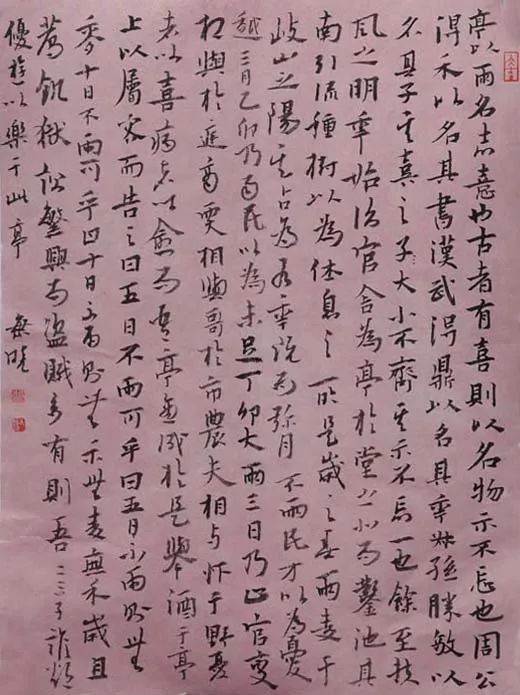 亭以雨名志喜也古者有喜則以名物示不忘也周公
得禾以名其書漢武得鼎以名其年叔孫勝敵以
名其子其喜之子大小不齊其示不忘一也餘至扶
風之明年始治官舍為亭於堂之北而鑿池其
南引流種樹以為休息之所是歲之春雨麥于
岐山之陽其占為有年既而彌月不雨民方以為憂
越三月乙卯乃雨民以為未足丁卯大雨三日乃止官吏
相與於庭商賈相與歌於市農夫相与忭于野憂
者以喜病者以愈而吾亭適成於是舉酒于亭
上以屬客而告之曰五日不雨可乎曰五日不雨則無
麥十日不雨可乎曰十日不雨則無禾無麥無禾歲且
薦飢獄訟繁興而盜賊多有則吾二三子雖欲
優游以樂于此亭